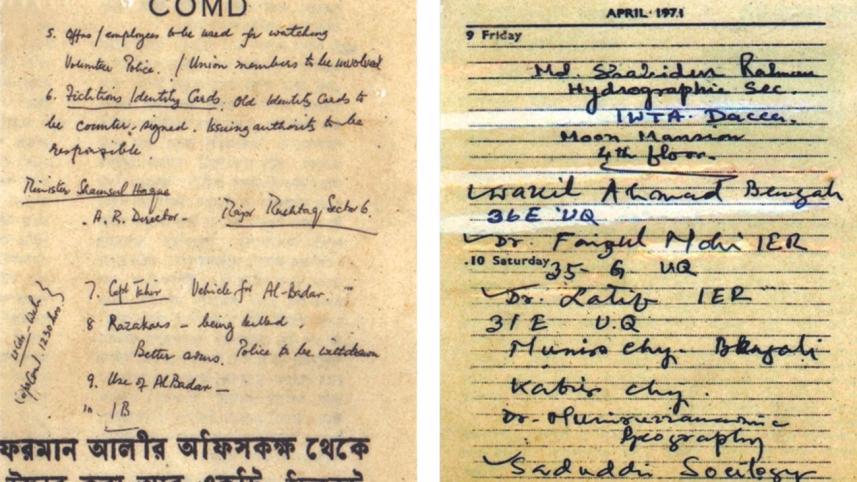 COMD
5. Offrs/employees to be used for watching
Volunteer Police. / Union members to be involved
6. Fictitious Identity Cards. Old Identity Cards to
be counter-signed. Issuing authority to be
responsible
Minister Shamsul Haque
A.R. Director -
Major Sector 6.
7. Capt Tahir Vehicle for Al-Badar.
8 Razakars - being killed.
Better arms. Police to be withdrawn
9. Use of Al Badar -
10. IB
ফরমান আলীর অফিসকক্ষ থেকে
APRIL 1971
9 Friday
Md. Rahman
Hydrographic Sec.
IWTA. Dacca.
Moon Mansion
4th floor.
Wakil Ahmad Bengali
36E UQ
Dr. Faizul Mohi IER
10 Saturday
35- G UQ
Dr. Latif IER
31E U.Q
Munir Chy. Bengali
Kabir Chy.
Dr.
Geography
Saduddin Sociology